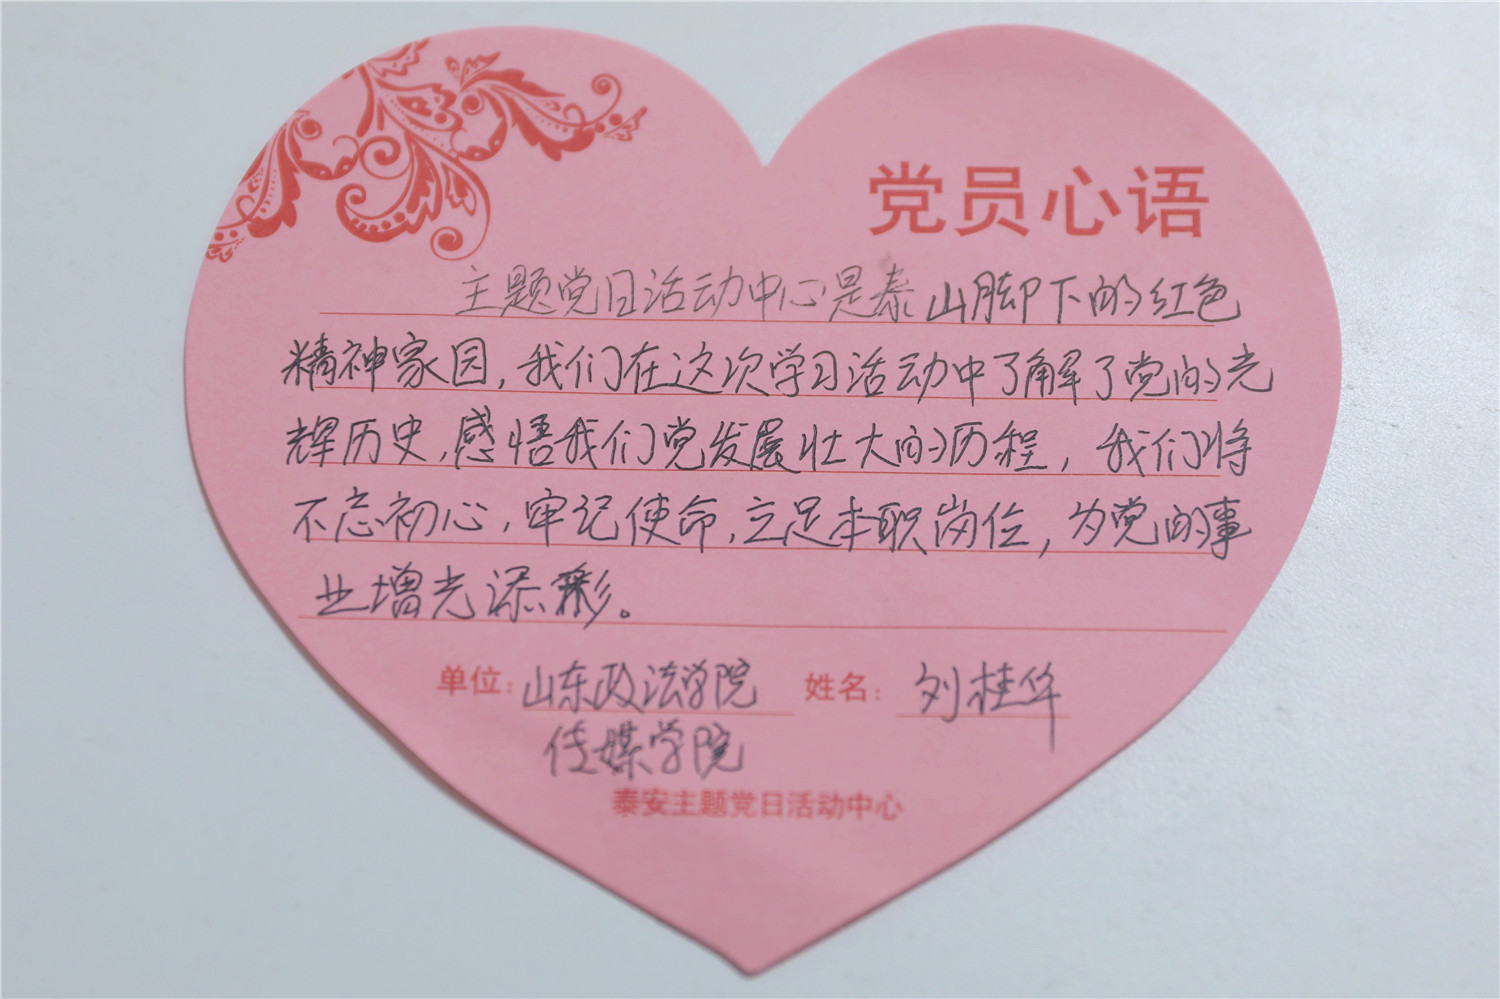 党员心语
主题党日活动中心是泰山脚下的红色
精神家园，我们在这次学习活动中了解了党的光
辉历史，感悟我们党发展壮大的历程，我们将
不忘初心，牢记使命，立足本职岗位，为党的事
业增光添彩。
单位：山东政法学院 姓名：刘桂华
传媒学院
泰安主题党日活动中心